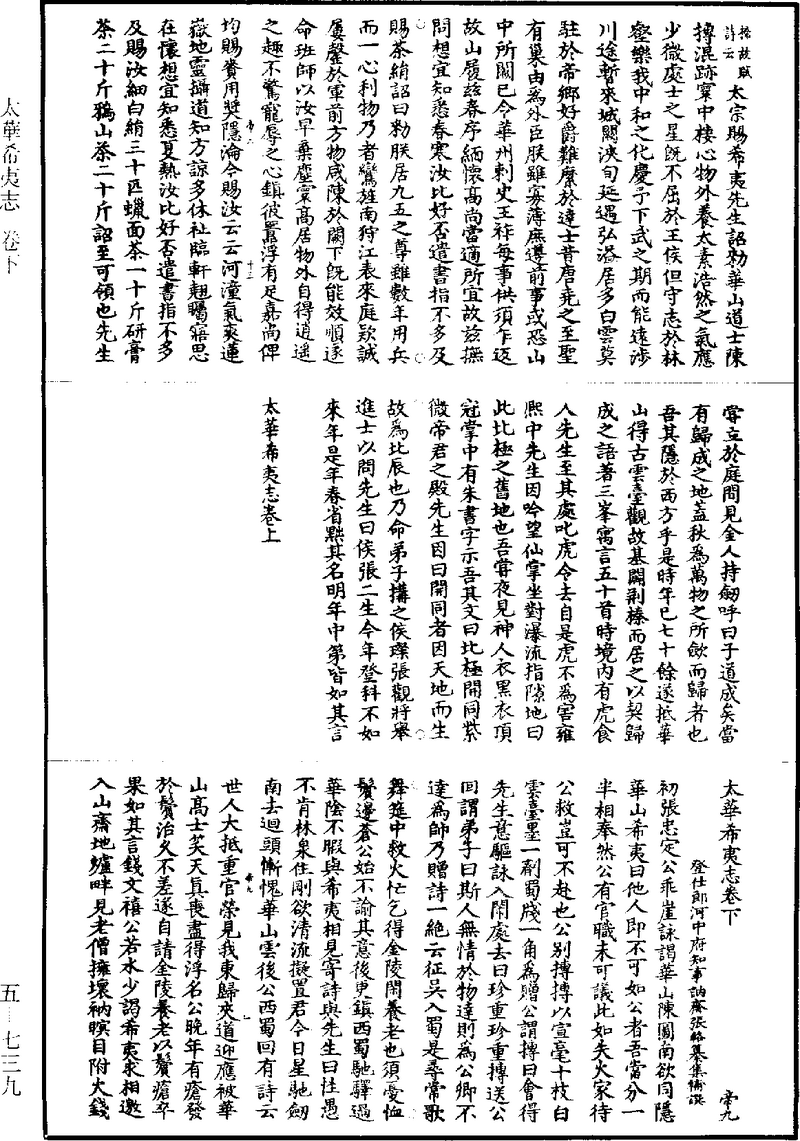 太華希夷志 卷下
五—七三九
搶故賦
詩云
太宗賜希夷先生詔勑華山道士陳
摶混跡寰中棲心物外養太素浩然之氣應
少微處士之星既不屈於王侯但守志於林
壑樂我中和之化慶予下武之期而能遠涉
川途暫來城闕浹旬延遇弘益居多白雲莫
駐於帝鄉好爵難縻於達士昔唐堯之至聖
有巢由為外臣朕雖寡薄庶遵前事或恐山
中所闕已令華州刺史王祚每事供須乍返
故山履兹春序緬懷高尚當適所宜故兹撫
問想宜知悉春寒汝比好否遣書指不多及
賜茶絹詔曰勑朕居九五之尊雖數年用兵
而一心利物乃者鸞旌南狩江表來庭欵誠
屢罄於軍前方物咸陳於闕下既能效順遂
命班師以汝早棄塵寰高居物外自得逍遥
之趣不驚寵辱之心鎮彼囂浮有足嘉尚俾
均賜賚用奬隱淪今賜汝云云河潼氣爽蓮
嶽地靈攝道知方諒多休祉臨軒翹矚寤思
在懷想宜知悉夏熱汝比好否遣書指不多
及賜汝細白絹三十匹蠟面茶一十斤研膏
茶二十斤鵶山茶二十斤詔至可領也先生
嘗立於庭間見金人持劒呼曰子道成矣當
有歸成之地蓋秋為萬物之所歛而歸者也
吾其隱於西方乎是時年已七十餘遂抵華
山得古雲臺觀故基闢荆榛而居之以契歸
成之語著三峯寓言五十首時境内有虎食
人先生至其處叱虎令去自是虎不為害雍
熙中先生因吟望仙掌坐對瀑流指隙地曰
此北極之舊地也吾嘗夜見神人衣黑衣頂
冠掌中有朱書字示吾其文曰北極開同紫
微帝君之殿先生因曰開同者因天地而生
故為北辰也乃命弟子搆之侯璨張觀將舉
進士以問先生曰侯張二生今年登科不如
來年是年春省黜其名明年中第皆如其言
太華希夷志卷上
太華希夷志卷下
帝九
登仕郎河中府知事訥齋張輅纂集補譔
初張忠定公乖崖詠謁華山陳圖南欲同隱
華山希夷曰他人即不可如公者吾當分一
半相奉然公有官職未可議此如失火家待
公救豈可不赴也公别摶摶以宣毫十枝白
雲臺墨一劑蜀牋一角為贈公謂摶曰會得
先生意驅詠入閙處去曰珍重珍重摶送公
回謂弟子曰斯人無情於物達則為公卿不
達為師乃贈詩一絶云征吳入蜀是尋常歌
舞筵中救火忙乞得金陵閑養老也須憂恤
鬢邊蒼公始不諭其意後更鎮西蜀馳驛過
華陰不暇與希夷相見寄詩與先生曰性愚
不肯林泉住剛欲清流擬置君今日星馳劒
南去迴頭慚愧華山雲後公西蜀回有詩云
世人大抵重官榮見我東歸夾道迎應被華
山高士笑天真喪盡得浮名公晚年有瘡發
於鬢治久不差遂自請金陵養老以鬢瘡卒
果如其言錢文禧公若水少謁希夷求相邀
入山齋地爐畔見老僧擁壞衲瞑目附火錢